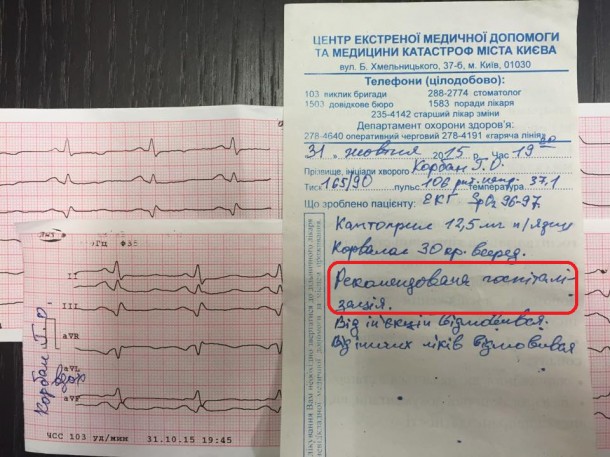 ЦЕНТР ЕКСТРЕНОЇ МЕДИЧНОЇ ДОПОМОГИ
ТА МЕДИЦИНИ КАТАСТРОФ МІСТА КИЄВА
вул. Б. Хмельницького, 37-б, м. Київ, 01030
Телефони (цілодобово):
103 виклик бригади 288-2774 стоматолог
1503 довідкове бюро 1583 поради лікаря
235-4142 старший лікар зміни
Департамент охорони здоров'я:
278-4640 оперативний черговий 278-4191 «гаряча лінія»
31. жовтня 2015 р. Час 19
Прізвище, ініціали хворого Корбан Г.О.
Тиск 165/90 пульс 106 температура 37,1
Що зроблено пацієнту: ЕКГ SpO2 96-97
Каптоприл 12,5 мг п/язик
Корвалол 30 кр. всеред.
Рекомендована госпіталі-
зація.
Від ін'єкцій відмовився.
Від інших ліків відмовився
II
III
aVR
aVL
aVF
Корбан Г.О.
ЧСС 103 уд/мин 31.10.15 19:45